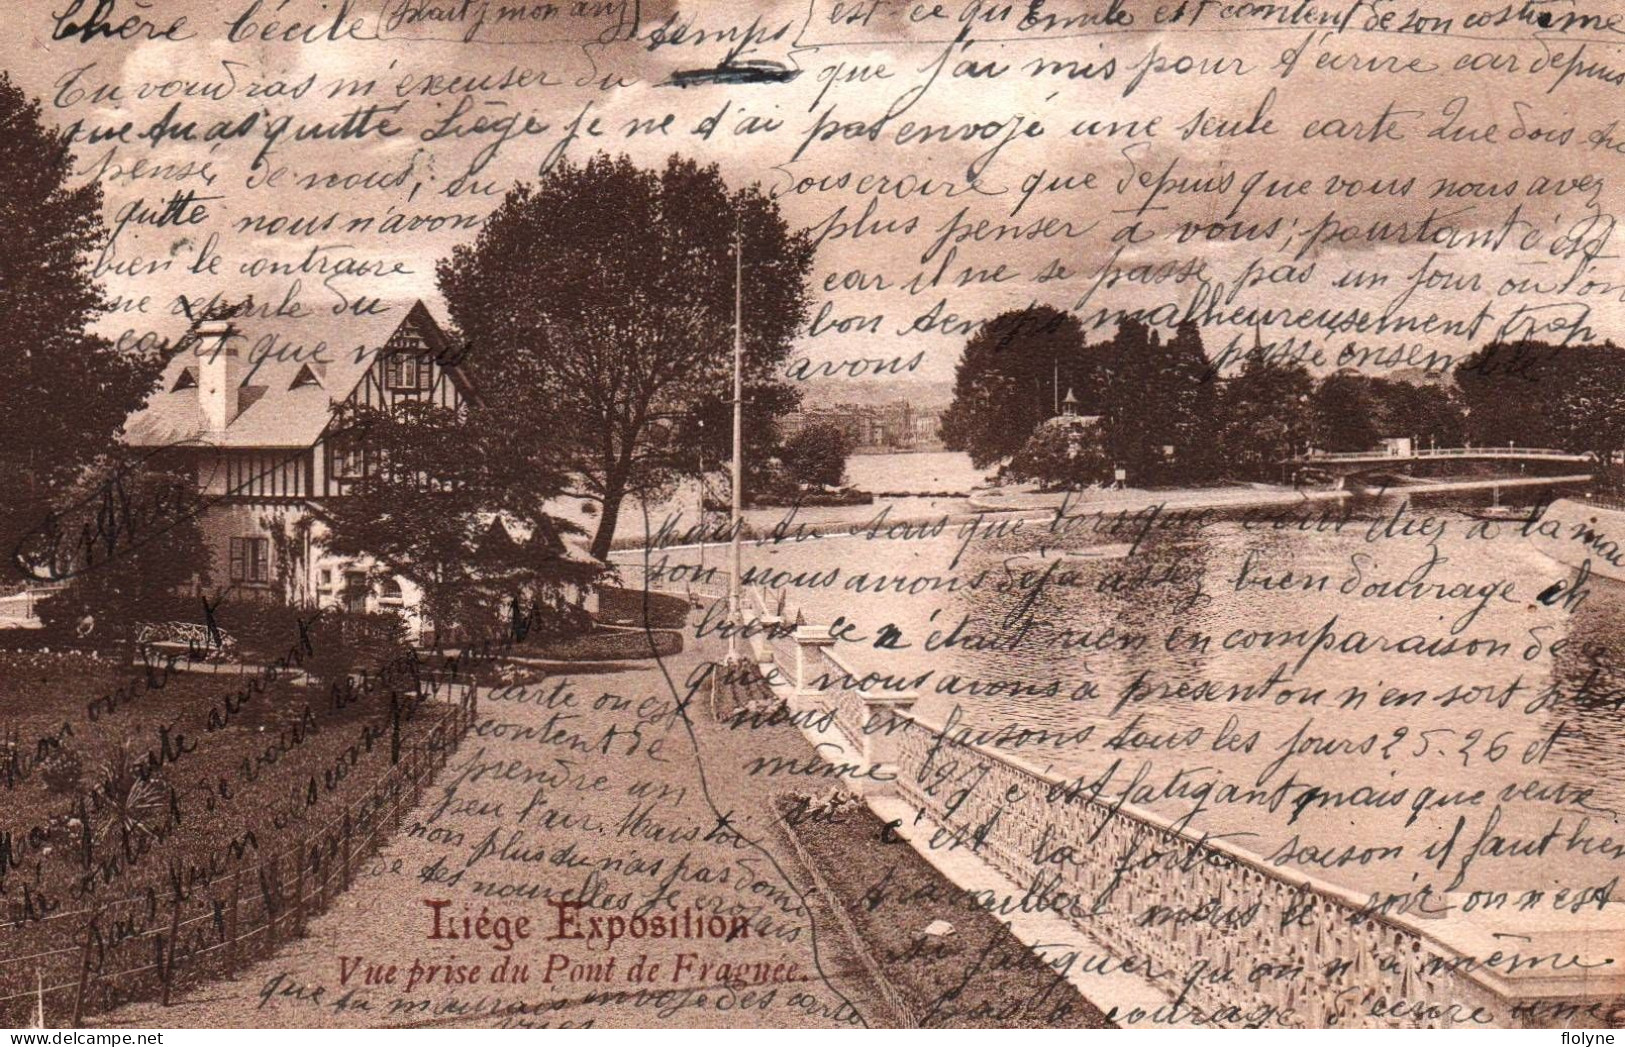 Chère Cécile est-ce qu'Emile est comtent de son costume
temps
Tu voudras m'excuser du que j'ai mis pour t'ècrire car depuis
que tu as quitté Liège je ne t'ai pas envojé une seule carte Que dois tu
pensé de nous; tu dois croire que depuis que vous nous avez
quitté nous n'avon plus penser à vous; pourtant c'est
bien le contraire car il ne se passe pas un jour ou l'on
ne reparle du bon temps malheureusement trop
court que nous avons passé ensemble
Mais tu sais que lorsque vous étiez à la mai
son nous avions déja assez bien d'ouvrage eh
bien ce n'était rien en comparaison de ce
que nous avons à present on n'en sort plus
nous en faisons tous les jours 25-26 et
même 27 c'est fatigant mais que veux
tu c'est la forte saison il faut bien
travailler mais le soir on n'est
si fatiguer qu'on n'a même
pas le courage d'ècrire une
carte on est
content de
prendre un
peu l'air. Mais toi
non plus tu n'as pas donné
de tes nouvelles je croyais
que tu m'aurais envojé des carte
Mon oncle et
Ma tante auront
été content de vous revoir
Esther
Liége Exposition
Vue prise du Pont de Fragnée.
flolyne